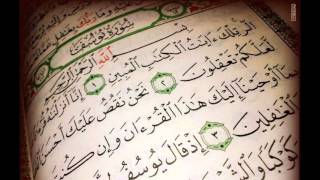 وما ربك بغفل
سورة يوسف
بسم الله الرحمن الرحيم
الر تلك ءايت الكتب المبين ١ إنا أنزلنه
لعلكم تعقلون ٢ نحن نقص عليك أحسن
بما أوحينا إليك هذا القرءان وإن كنت
الغفلين ٣ إذ قال يوسف
كوكبا والشمس